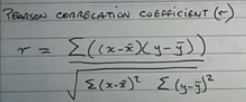 PEARSON CORRELATION COEFFICIENT (r)
r = Σ((x-x̄)(y-ȳ)) / √Σ(x-x̄)² Σ(y-ȳ)²